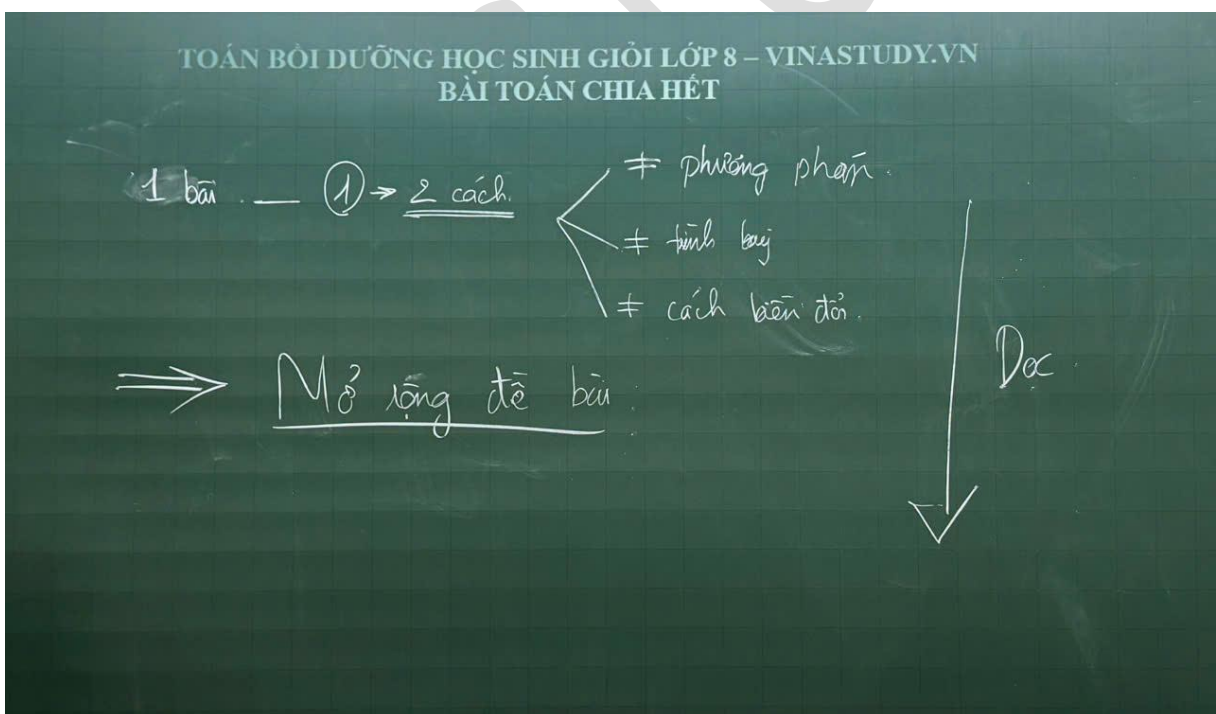 TOÁN BỒI DƯỠNG HỌC SINH GIỎI LỚP 8 – VINASTUDY.VN
BÀI TOÁN CHIA HẾT
1 bài. — ① → 2 cách.
≠ phương pháp.
≠ trình bày
≠ cách biến đổi.
⇒ Mở rộng đề bài.
Dọc